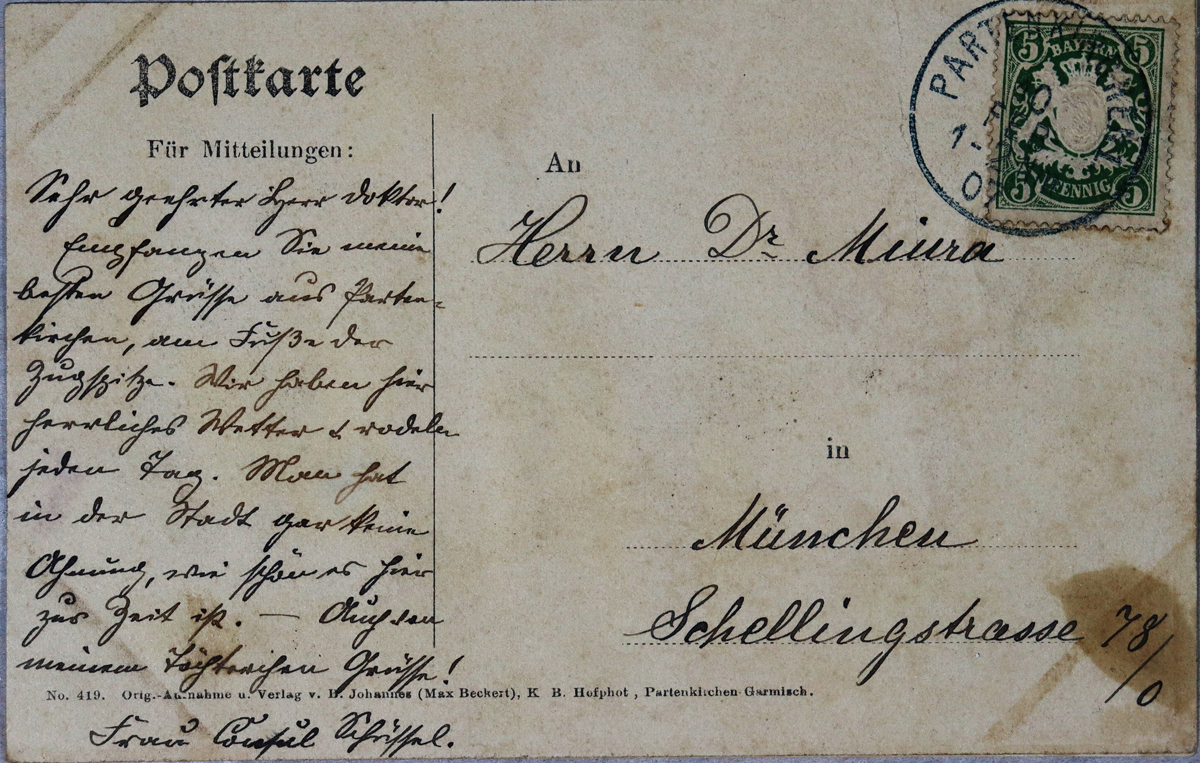 Postkarte
Für Mitteilungen:
Sehr geehrter Herr Doktor!
Empfangen Sie meine
besten Grüsse aus Parten-
kirchen, am Fuße der
Zugspitze. Wir haben hier
herrliches Wetter & rodeln
jeden Tag. Man hat
in der Stadt gar keine
Ahnung, wie schön es hier
zur Zeit ist. — Auch von
meinem Töchterchen Grüsse!
Frau Consul Schüssel.
No. 419. Orig.-Aufnahme u. Verlag v. B. Johannes (Max Beckert), K. B. Hofphot., Partenkirchen-Garmisch.
An
Herrn Dr. Miura
in
München
Schellingstrasse 78/0
PARTENKIRCHEN
5 5
BAYERN
PFENNIG
5 5